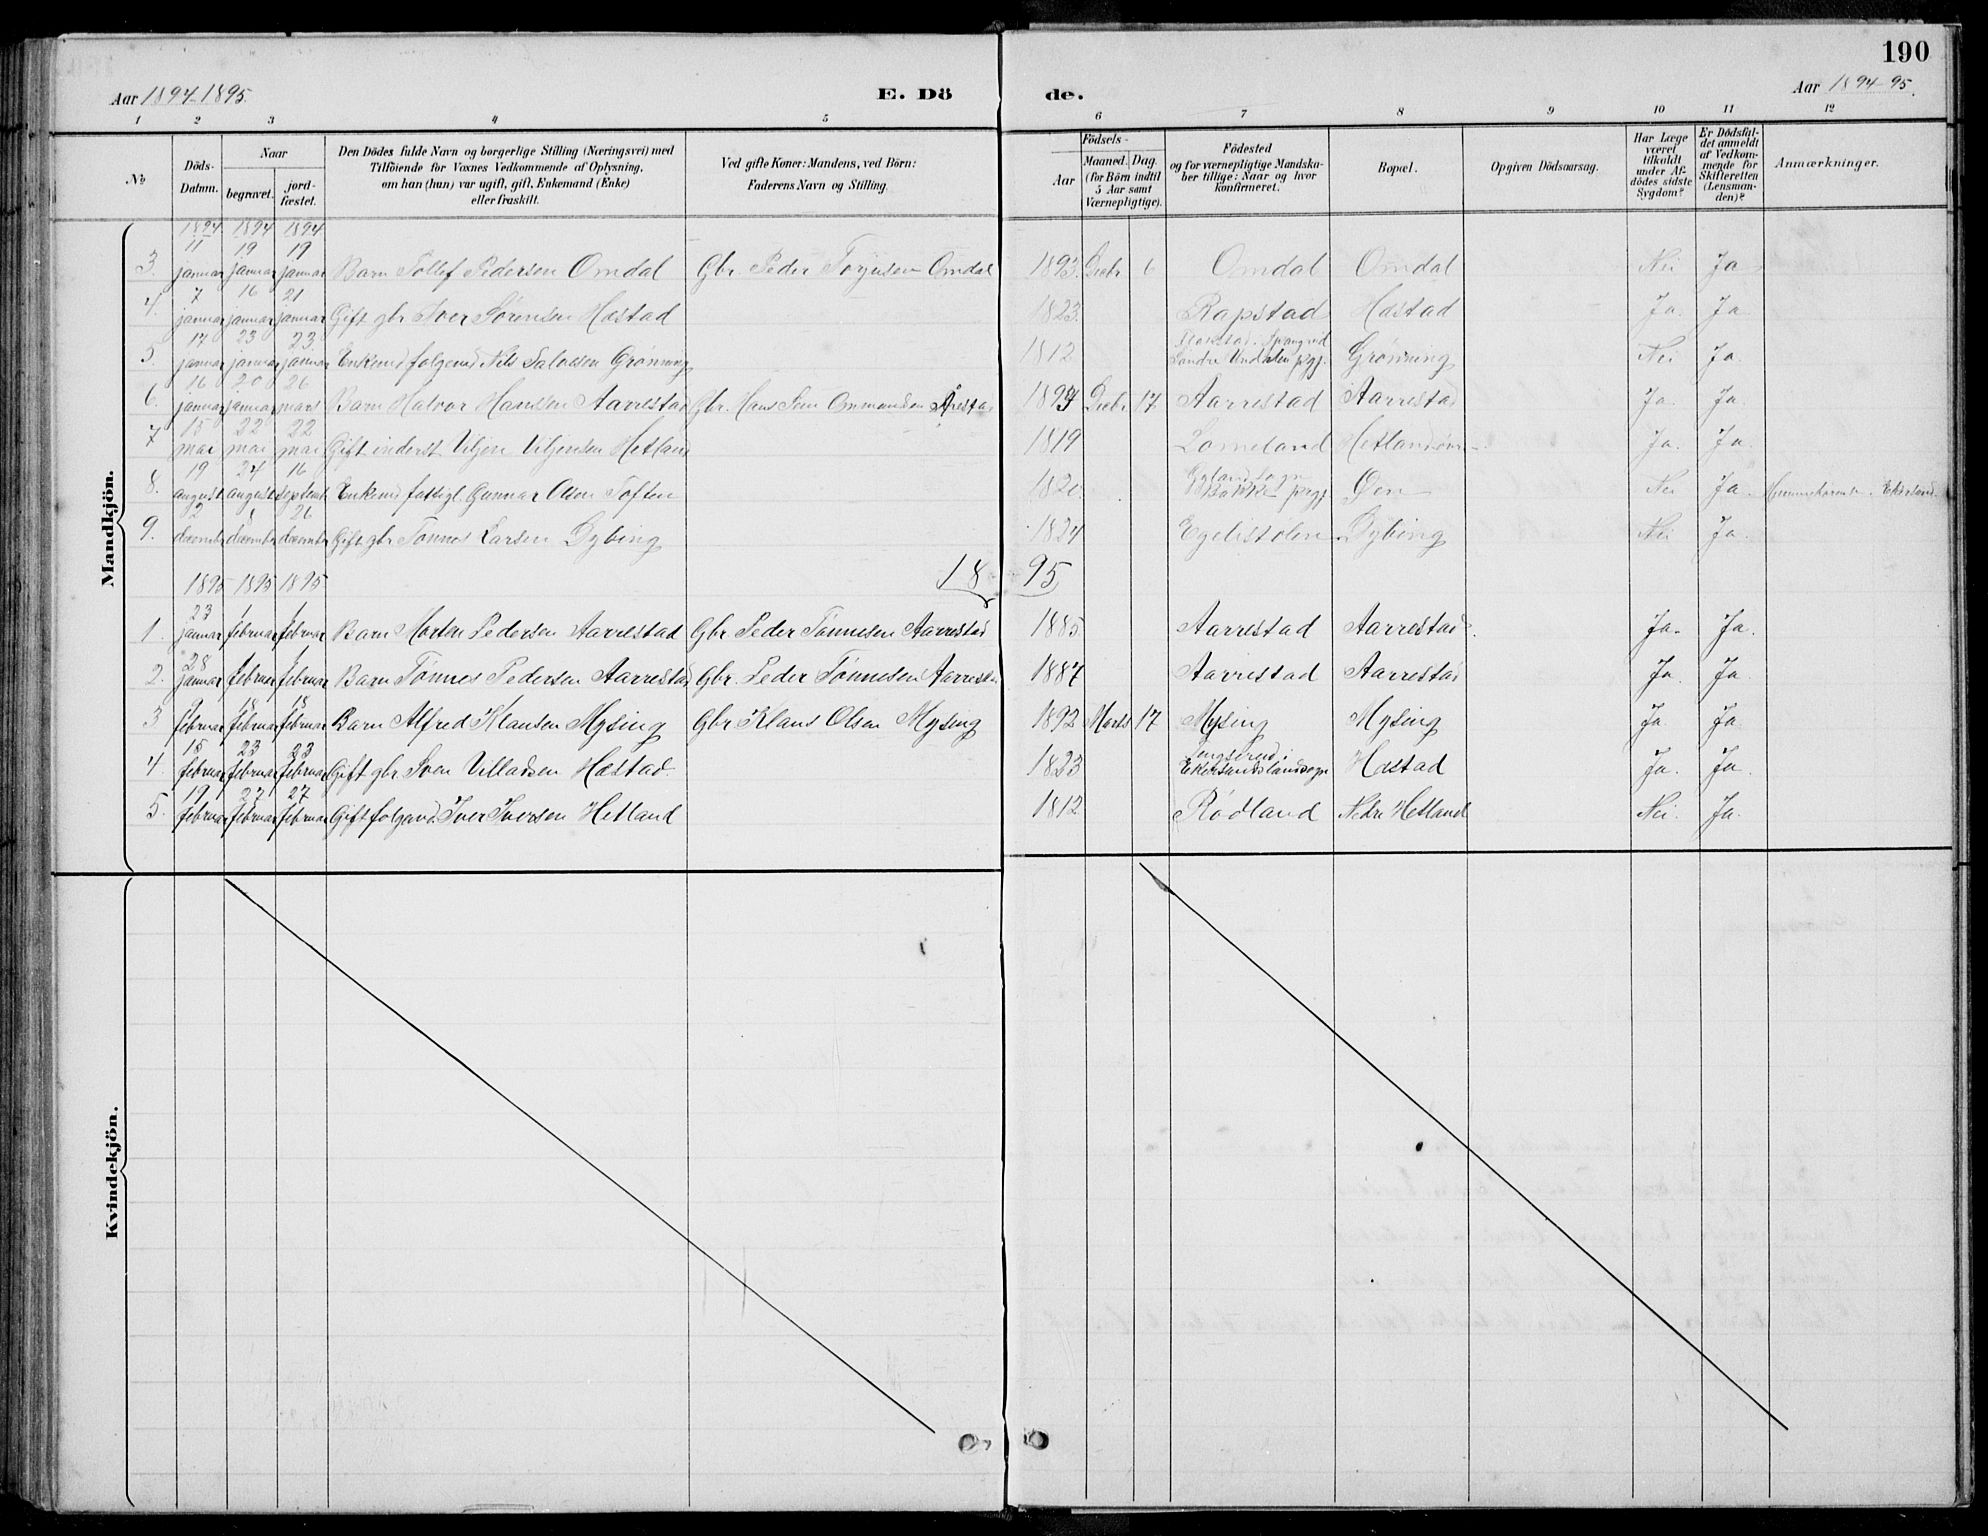 190
Aar 1894-1895.
E. Dö
de.
Aar 1894-95.
1 2 3 4 5 6 7 8 9 10 11 12
№
Döds-Datum.
Naar
begravet.
jord-fæstet.
Den Dödes fulde Navn og borgerlige Stilling (Næringsvei) med
Tilföiende for Voxnes Vedkommende af Oplysning,
om han (hun) var ugift, gift, Enkemand (Enke)
eller fraskilt.
Ved gifte Koner: Mandens, ved Börn:
Faderens Navn og Stilling.
Födsels-
Aar
Maaned. Dag.
(for Börn indtil
5 Aar samt
Værnepligtige).
Födested
og for værnepligtige Mandska-
ber tillige: Naar og hvor
konfirmeret.
Bopæl.
Opgiven Dödsaarsag.
Har Læge
været
tilkaldt
under Af-
dödes sidste
Sygdom?
Er Dödsfal-
det anmeldt
af Vedkom-
mende for
Skifteretten
(Lensman-
den)?
Anmærkninger.
Mandkjön.
1894 1894 1894
11 19 19
3. januar januar januar Barn Tollef Pedersen Omdal Gbr. Peder Torjusen Omdal 1893. Decbr 6 Omdal Omdal Nei Ja
7 16 21
4. januar januar januar Gift gbr Iver Sørensen Hæstad 1823. Rapstad Hæstad Ja. Ja
17 23 23
5 januar januar januar Enkemd folgemd Nils Salvesen Grønning 1812 Søndre Undalen pgj. Grønning Nei Ja.
16 20 26
6. januar januar mars Barn Halvor Hansen Aarrestad Gbr. Hans Sem Ommundsen Årestad 1893 Decbr 17 Aarrestad Aarrestad Ja. Ja.
15 22 22
7 mai mai mai Gift inderst Viljen Viljensen Hetland 1819 Lomeland Ja. Ja.
19 24 16
8. august august septemb. Enkemd fattigl. Gunnar Olsen Toften 1820. Bakke prgj. Øen Nei Ja.
2 26
9. decembe decembe decembe Gift gbr Tønnes Larsen Dybing 1824 Egelistolen Dybing Nei Ja.
1895 1895 1895
1895
23 1 1
1. januar februar februar Barn Morten Pedersen Aarrestad Gbr Peder Tønnesen Aarrestad 1885. Aarrestad Aarrestad. Ja. Ja.
28 1 1
2. januar februar februar Barn Tønnes Pedersen Aarrestad Gbr. Peder Tønnesen Aarrestad 1887 Aarrestad Aarrestad Ja. Ja.
9 15 15
3 februar februar februar Barn Alfred Klausen Mysing Gbr Klaus Olsen Mysing 1892 Marts 17 Mysing Mysing Ja Ja
15 23 23
4. februar februar februar Gift gbr Sven Villadsen Hæstad. 1823 Ekersunds landsogn Hæstad Ja. Ja.
19 27 27
5. februar februar februar Gift folgemd. Iver Iversen Hetland 1812 Rødland Nedre Hetland Nei. Ja.
Kvindekjön.